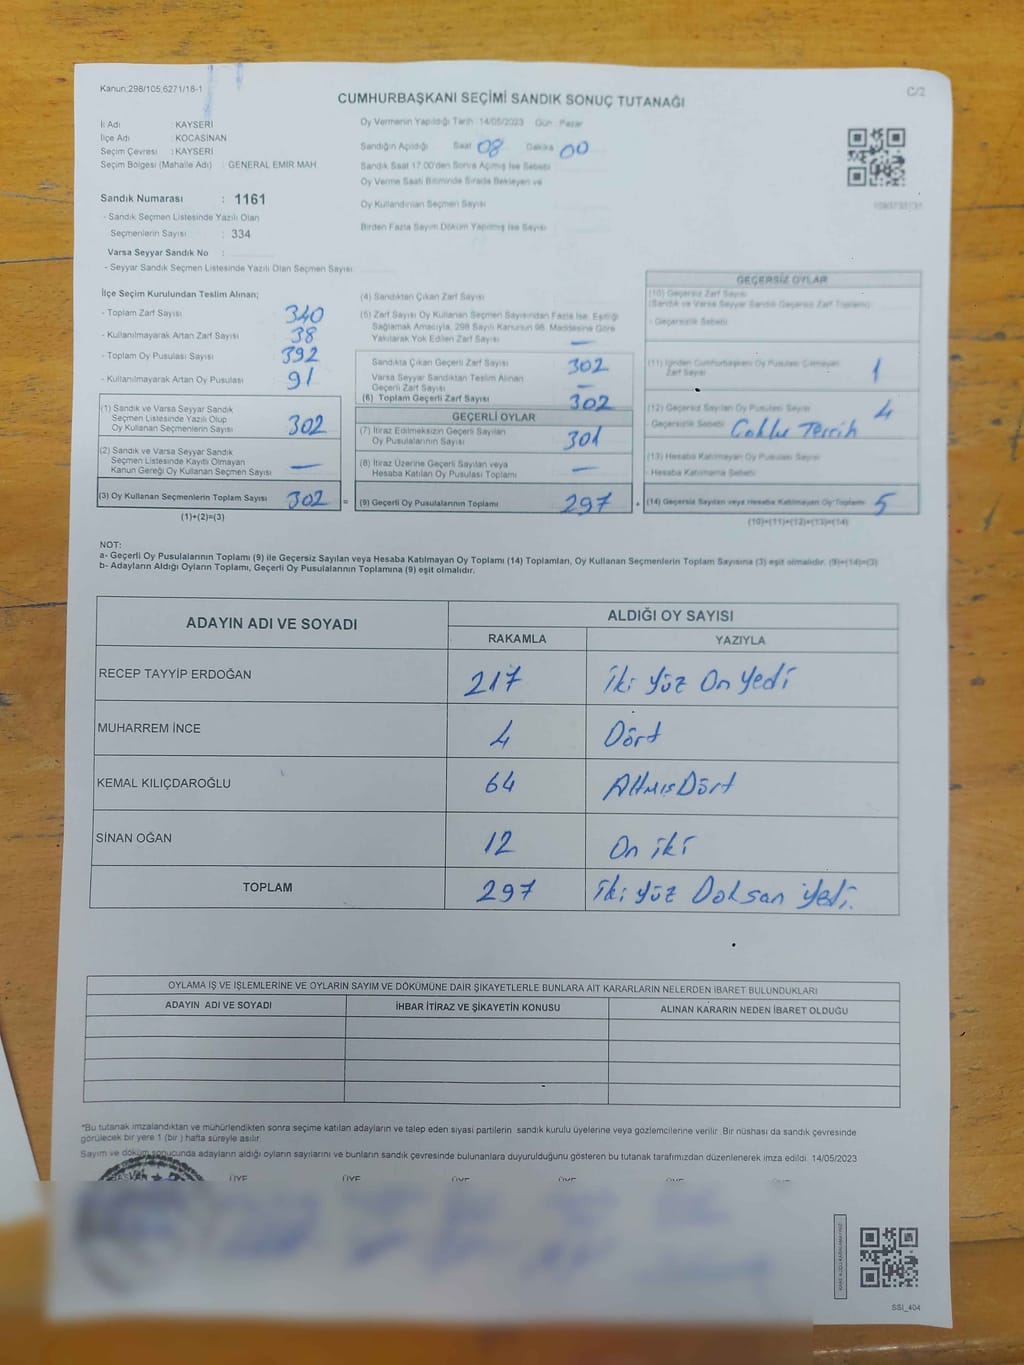 Kanun:298/105,6271/18-1
C/2
CUMHURBAŞKANI SEÇİMİ SANDIK SONUÇ TUTANAĞI
İl Adı : KAYSERİ
İlçe Adı : KOCASİNAN
Seçim Çevresi : KAYSERİ
Seçim Bölgesi (Mahalle Adı) : GENERAL EMİR MAH
Sandık Numarası : 1161
- Sandık Seçmen Listesinde Yazılı Olan
Seçmenlerin Sayısı : 334
Varsa Seyyar Sandık No :
- Seyyar Sandık Seçmen Listesinde Yazılı Olan Seçmen Sayısı
Oy Vermenin Yapıldığı Tarih : 14/05/2023 Gün : Pazar
Sandığın Açıldığı Saat 08 Dakika 00
Sandık Saat 17.00'den Sonra Açılmış İse Sebebi
Oy Verme Saati Bitiminde Sırada Bekleyen ve
Oy Kullandırılan Seçmen Sayısı
Birden Fazla Sayım Döküm Yapılmış İse Sayısı
İlçe Seçim Kurulundan Teslim Alınan;
- Toplam Zarf Sayısı 340
- Kullanılmayarak Artan Zarf Sayısı 38
- Toplam Oy Pusulası Sayısı 392
- Kullanılmayarak Artan Oy Pusulası 91
(1) Sandık ve Varsa Seyyar Sandık
Seçmen Listesinde Yazılı Olup
Oy Kullanan Seçmenlerin Sayısı 302
(2) Sandık ve Varsa Seyyar Sandık
Seçmen Listesinde Kayıtlı Olmayan
Kanun Gereği Oy Kullanan Seçmen Sayısı —
(3) Oy Kullanan Seçmenlerin Toplam Sayısı 302 =
(1)+(2)=(3)
(4) Sandıktan Çıkan Zarf Sayısı
(5) Zarf Sayısı Oy Kullanan Seçmen Sayısından Fazla İse, Eşitliği
Sağlamak Amacıyla, 298 Sayılı Kanunun 98. Maddesine Göre
Yakılarak Yok Edilen Zarf Sayısı —
Sandıkta Çıkan Geçerli Zarf Sayısı 302
Varsa Seyyar Sandıktan Teslim Alınan
Geçerli Zarf Sayısı —
(6) Toplam Geçerli Zarf Sayısı 302
GEÇERLİ OYLAR
(7) İtiraz Edilmeksizin Geçerli Sayılan
Oy Pusulalarının Sayısı 301
(8) İtiraz Üzerine Geçerli Sayılan veya
Hesaba Katılan Oy Pusulası Toplamı —
(9) Geçerli Oy Pusulalarının Toplamı 297 +
GEÇERSİZ OYLAR
(10) Geçersiz Zarf Sayısı
(Sandık ve Varsa Seyyar Sandık Geçersiz Zarf Toplamı)
- Geçersizlik Sebebi
(11) İçinden Cumhurbaşkanı Oy Pusulası Çıkmayan
Zarf Sayısı 1
(12) Geçersiz Sayılan Oy Pusulası Sayısı 4
- Geçersizlik Sebebi Çoklu Tercih
(13) Hesaba Katılmayan Oy Pusulası Sayısı
- Hesaba Katılmama Sebebi
(14) Geçersiz Sayılan veya Hesaba Katılmayan Oy Toplamı 5
(10)+(11)+(12)+(13)=(14)
NOT:
a- Geçerli Oy Pusulalarının Toplamı (9) ile Geçersiz Sayılan veya Hesaba Katılmayan Oy Toplamı (14) Toplamları, Oy Kullanan Seçmenlerin Toplam Sayısına (3) eşit olmalıdır. (9)+(14)=(3)
b- Adayların Aldığı Oyların Toplamı, Geçerli Oy Pusulalarının Toplamına (9) eşit olmalıdır.
ADAYIN ADI VE SOYADI
ALDIĞI OY SAYISI
RAKAMLA YAZIYLA
RECEP TAYYİP ERDOĞAN 217 İki Yüz On Yedi
MUHARREM İNCE 4 Dört
KEMAL KILIÇDAROĞLU 64 Altmış Dört
SİNAN OĞAN 12 On iki
TOPLAM 297 İki yüz Doksan yedi.
OYLAMA İŞ VE İŞLEMLERİNE VE OYLARIN SAYIM VE DÖKÜMÜNE DAİR ŞİKAYETLERLE BUNLARA AİT KARARLARIN NELERDEN İBARET BULUNDUKLARI
ADAYIN ADI VE SOYADI İHBAR İTİRAZ VE ŞİKAYETİN KONUSU ALINAN KARARIN NEDEN İBARET OLDUĞU
*Bu tutanak imzalandıktan ve mühürlendikten sonra seçime katılan adayların ve talep eden siyasi partilerin sandık kurulu üyelerine veya gözlemcilerine verilir. Bir nüshası da sandık çevresinde
görülecek bir yere 1 (bir) hafta süreyle asılır.
Sayım ve döküm sonucunda adayların aldığı oyların sayılarını ve bunların sandık çevresinde bulunanlara duyurulduğunu gösteren bu tutanak tarafımızdan düzenlenerek imza edildi. 14/05/2023
BAŞKAN ÜYE ÜYE ÜYE ÜYE ÜYE ÜYE
SSİ_404